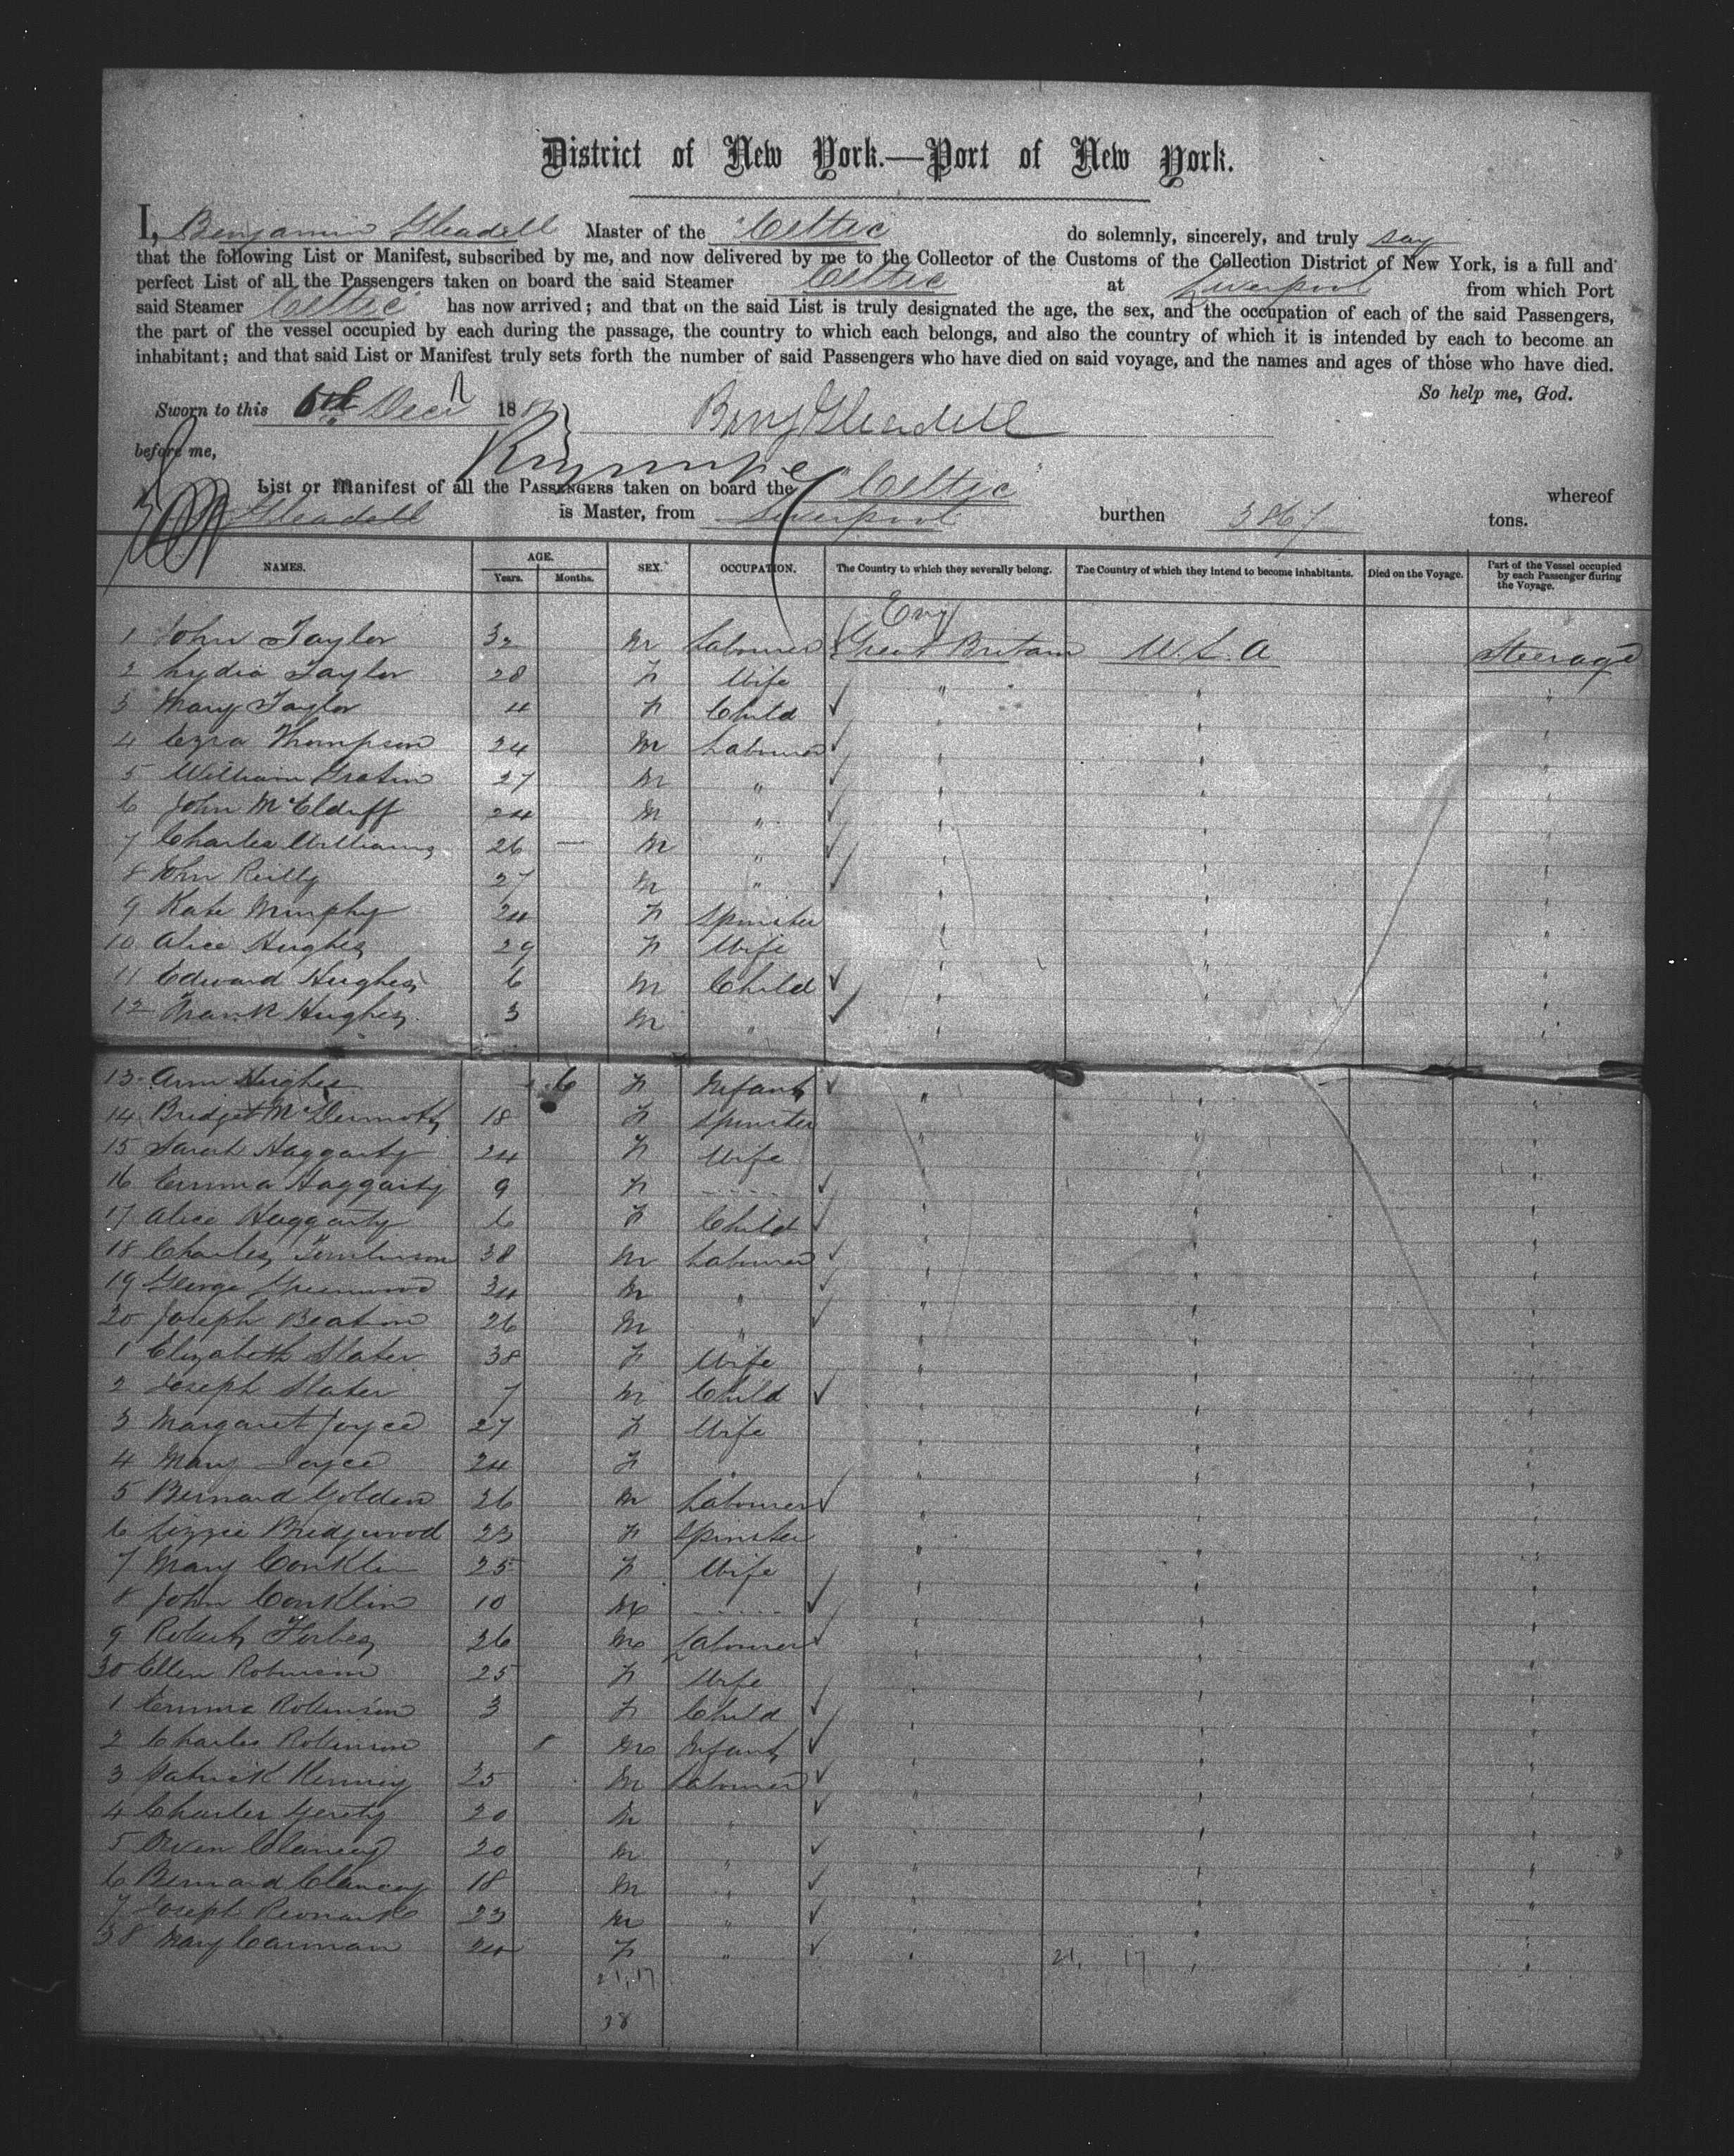 District of New York.—Port of New York.
I, Benjamin Gleadell Master of the "Celtic do solemnly, sincerely, and truly say
that the following List or Manifest, subscribed by me, and now delivered by me to the Collector of the Customs of the Collection District of New York, is a full and
perfect List of all the Passengers taken on board the said Steamer Celtic at Liverpool from which Port
said Steamer Celtic has now arrived; and that on the said List is truly designated the age, the sex, and the occupation of each of the said Passengers,
the part of the vessel occupied by each during the passage, the country to which each belongs, and also the country of which it is intended by each to become an
inhabitant; and that said List or Manifest truly sets forth the number of said Passengers who have died on said voyage, and the names and ages of those who have died.
So help me, God.
Sworn to this 6th Decr 188 Benj Gleadell
before me,
List or Manifest of all the PASSENGERS taken on board the "Celtic" whereof
Gleadell is Master, from Liverpool burthen 3867 tons.
NAMES. AGE. Years. Months. SEX. OCCUPATION. The Country to which they severally belong. The Country of which they intend to become inhabitants. Died on the Voyage. Part of the Vessel occupied by each Passenger during the Voyage.
Eng
1 John Taylor 32 M Labourer Great Britain U.S.A Steerage
2 Lydia Taylor 28 F Wife " " "
3 Mary Taylor 4 F Child " " "
4 Ezra Thompson 24 M Labourer " " "
5 William 27 M " " " "
6 John McElduff 24 M " " " "
7 Charles Williams 26 — M " " " "
8 John Reilly 27 M " " " "
9 Kate Murphy 24 F Spinster " " "
10 Alice Hughes 29 F Wife " " "
11 Edward Hughes 6 M Child " " "
12 Frank Hughes 3 M " " " "
13 Ann Hughes 6 F Infant " " "
14 Bridget McDermott 18 F Spinster " " "
15 Sarah Haggarty 24 F Wife " " "
16 Emma Haggarty 9 F ..... " " "
17 Alice Haggarty 6 F Child " " "
18 Charles Tomlinson 38 M Labourer " " "
19 George Greenwood 34 M " " " "
20 Joseph Beaton 26 M " " " "
1 Elizabeth Slater 38 F Wife " " "
2 Joseph Slater 7 M Child " " "
3 Margaret Joyce 27 F Wife " " "
4 Mary Joyce 24 F " " " "
5 Bernard Golden 26 M Labourer " " "
6 Lizzie Bridgwood 23 F Spinster " " "
7 Mary Conklin 25 F Wife " " "
8 John Conklin 10 M ..... " " "
9 Robert Forbes 26 M Labourer " " "
30 Ellen Robinson 25 F Wife " " "
1 Emma Robinson 3 F Child " " "
2 Charles Robinson 8 M Infant " " "
3 Patrick Kenney 25 M Labourer " " "
4 Charles Gerety 20 M " " " "
5 Owen Clancey 20 M " " " "
6 Bernard Clancey 18 M " " " "
7 Joseph 23 M " " " "
38 Mary Cannan 24 F " " " "
21,17 21, 17
38